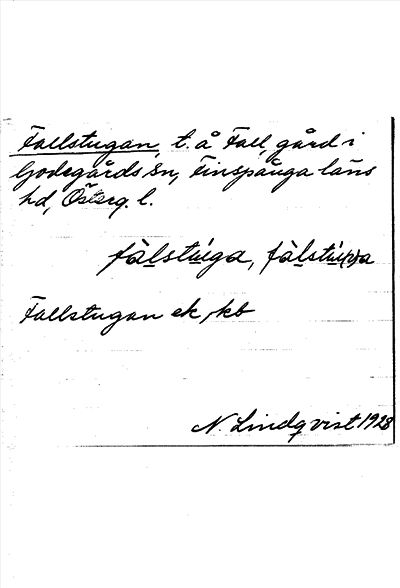 Fallstugan, t. å Fall, gård i
Godegårds sn, Finspånga läns
hd, Österg. l.
fàlstúga, fàlstú(γ)a
Fallstugan ek, kb
N. Lindqvist 1928